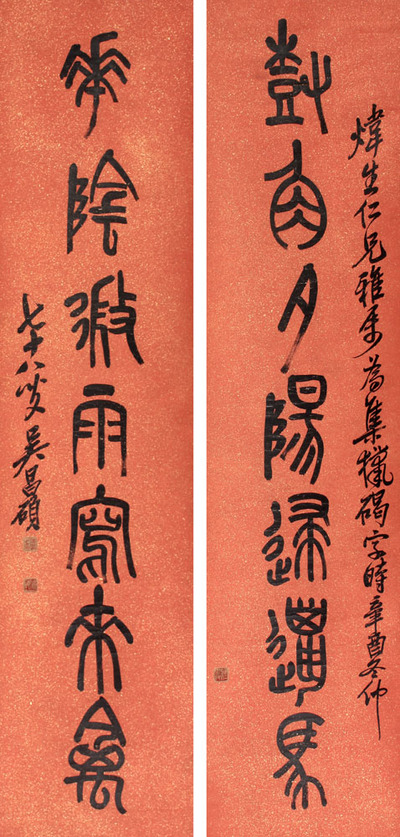 煒生仁兄雅屬為集獵碣字時辛酉冬仲
尌角夕陽歸馬
華陰微雨寫來禽
七十八叟吳昌碩